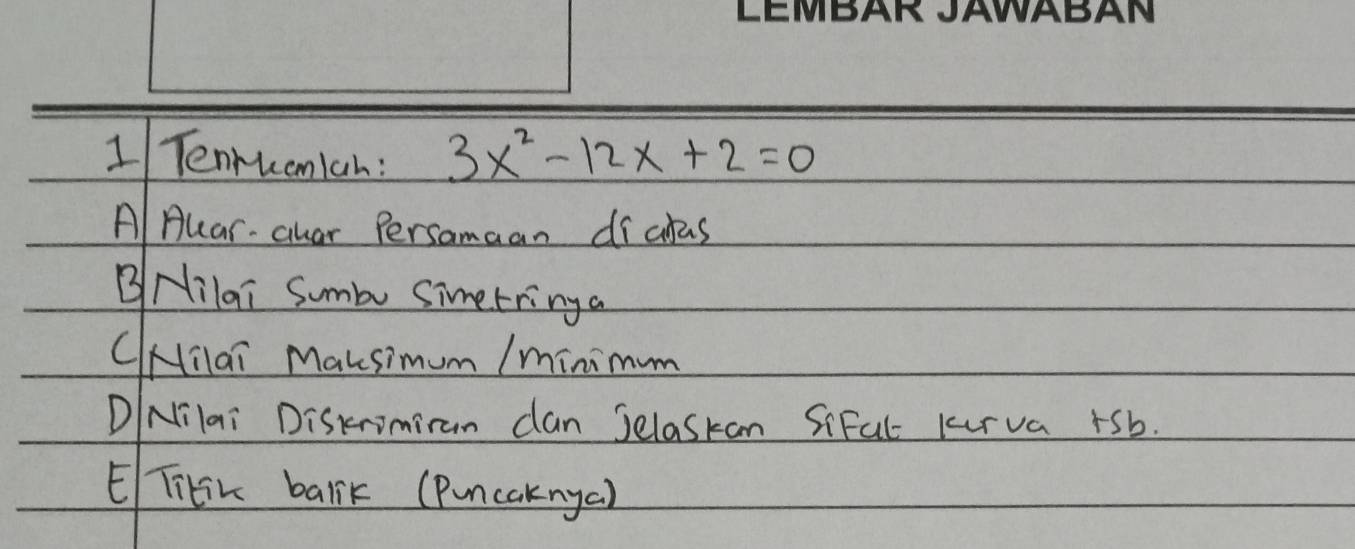 LEMBAR JAWABAN
1 Tentukanlah: 3x² - 12x + 2 = 0
A Akar-akar Persamaan diatas
B Nilai Sumbu Simetrinya
C Nilai Maksimum / minimum
D Nilai Diskriminan dan jelaskan Sifat kurva tsb.
E Titik balik (Puncaknya)